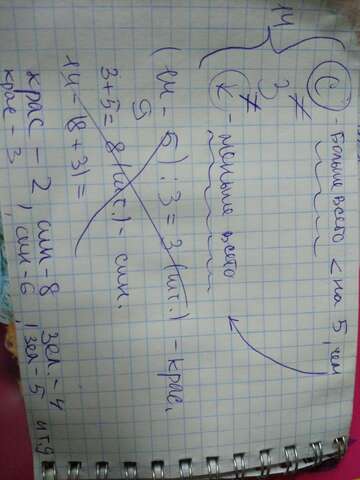 14 { (С) - Больше всего < на 5, чем
≠
3
≠
(К) - меньше всего
(14 - 5) : 3 = 3 (шт.) - крас.
9
3 + 5 = 8 (шт.) - син.
14 - (8 + 3) =
крас - 2, син - 8 зел. - 4
крас - 3, син - 6, зел - 5 и т.д